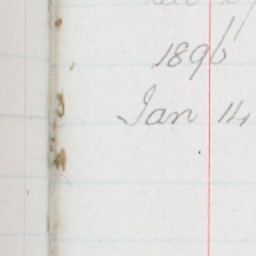 1896
Jan 14